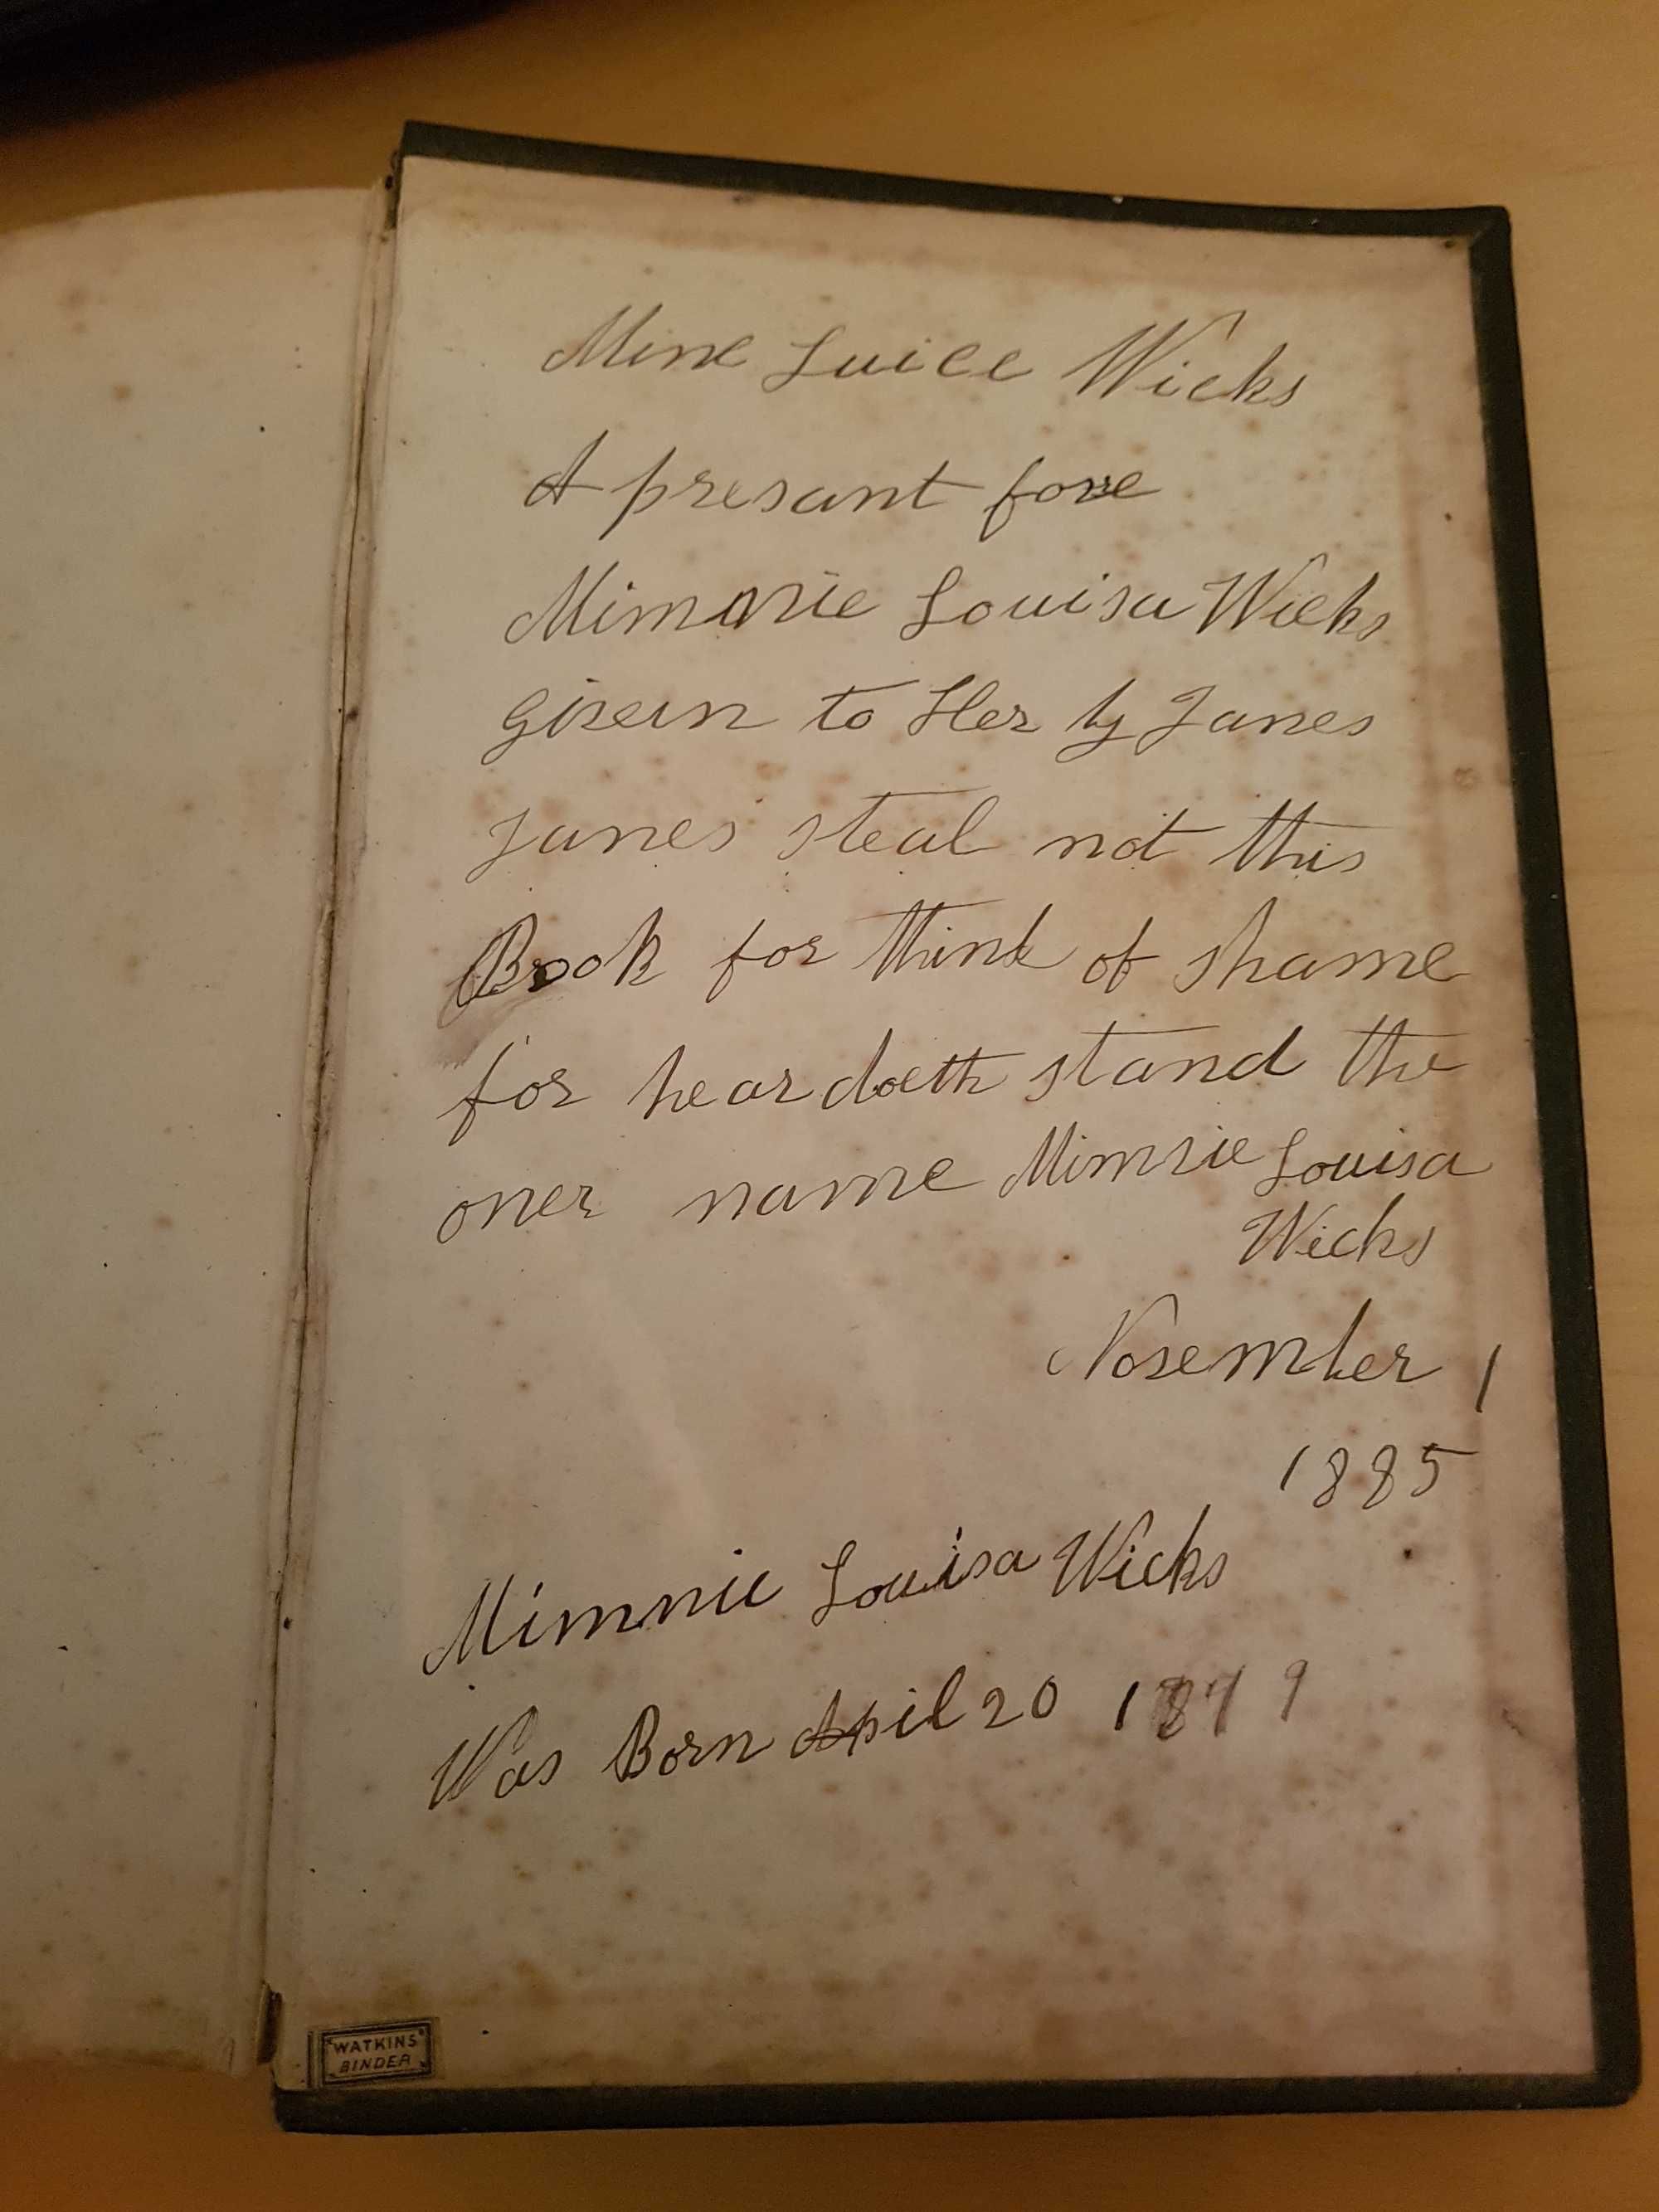 Mine Luice Wicks
A presant fore
Mimnie Louisa Wicks
given to Her by Janes
Janes steal not this
Book for think of shame
for hear doeth stand the
oner name Mimnie Louisa
Wicks
November 1
1885
Mimnie Louisa Wicks
Was Born April 20 1879
WATKINS
BINDER